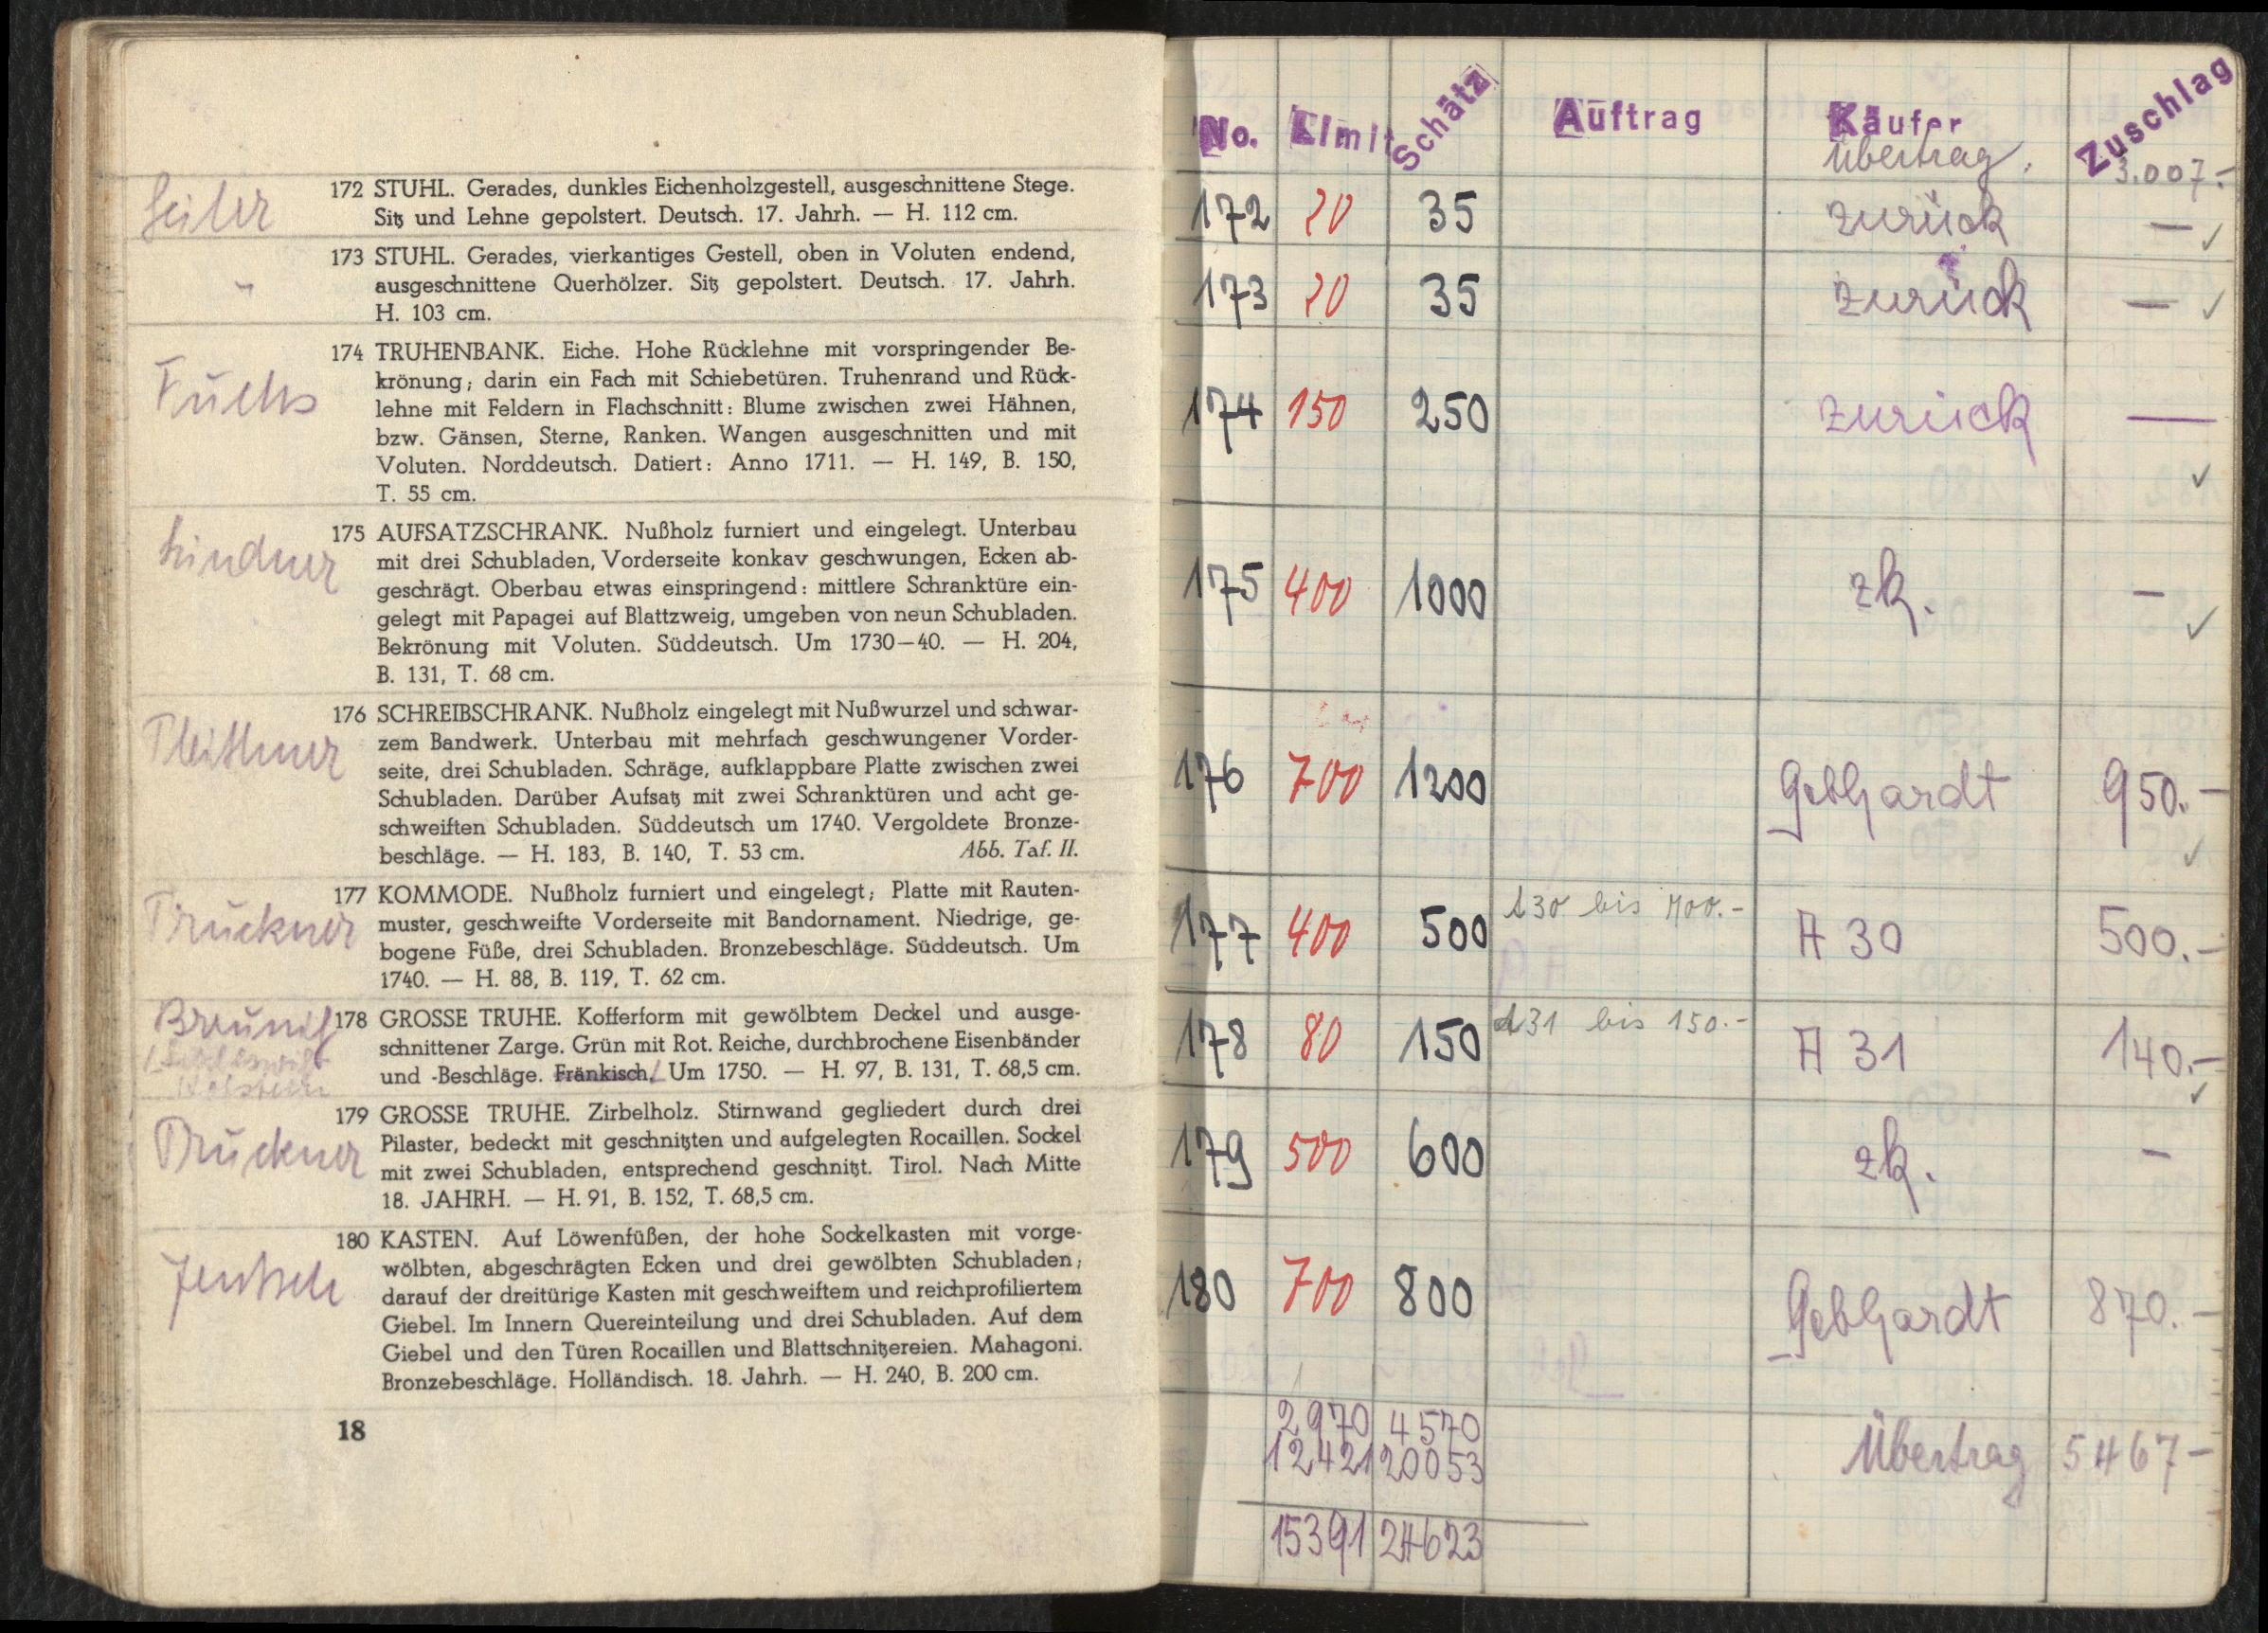 Seiler
172 STUHL. Gerades, dunkles Eichenholzgestell, ausgeschnittene Stege.
Sitz und Lehne gepolstert. Deutsch. 17. Jahrh. — H. 112 cm.
173 STUHL. Gerades, vierkantiges Gestell, oben in Voluten endend,
ausgeschnittene Querhölzer. Sitz gepolstert. Deutsch. 17. Jahrh.
H. 103 cm.
Fuchs
174 TRUHENBANK. Eiche. Hohe Rücklehne mit vorspringender Be-
krönung; darin ein Fach mit Schiebetüren. Truhenrand und Rück-
lehne mit Feldern in Flachschnitt: Blume zwischen zwei Hähnen,
bzw. Gänsen, Sterne, Ranken. Wangen ausgeschnitten und mit
Voluten. Norddeutsch. Datiert: Anno 1711. — H. 149, B. 150,
T. 55 cm.
Lindner
175 AUFSATZSCHRANK. Nußholz furniert und eingelegt. Unterbau
mit drei Schubladen, Vorderseite konkav geschwungen, Ecken ab-
geschrägt. Oberbau etwas einspringend: mittlere Schranktüre ein-
gelegt mit Papagei auf Blattzweig, umgeben von neun Schubladen.
Bekrönung mit Voluten. Süddeutsch. Um 1730–40. — H. 204,
B. 131, T. 68 cm.
176 SCHREIBSCHRANK. Nußholz eingelegt mit Nußwurzel und schwar-
zem Bandwerk. Unterbau mit mehrfach geschwungener Vorder-
seite, drei Schubladen. Schräge, aufklappbare Platte zwischen zwei
Schubladen. Darüber Aufsatz mit zwei Schranktüren und acht ge-
schweiften Schubladen. Süddeutsch um 1740. Vergoldete Bronze-
beschläge. — H. 183, B. 140, T. 53 cm. Abb. Taf. II.
Pruckner
177 KOMMODE. Nußholz furniert und eingelegt; Platte mit Rauten-
muster, geschweifte Vorderseite mit Bandornament. Niedrige, ge-
bogene Füße, drei Schubladen. Bronzebeschläge. Süddeutsch. Um
1740. — H. 88, B. 119, T. 62 cm.
Breunig
Schleswig
Holstein
178 GROSSE TRUHE. Kofferform mit gewölbtem Deckel und ausge-
schnittener Zarge. Grün mit Rot. Reiche, durchbrochene Eisenbänder
und -Beschläge. Fränkisch. Um 1750. — H. 97, B. 131, T. 68,5 cm.
Pruckner
179 GROSSE TRUHE. Zirbelholz. Stirnwand gegliedert durch drei
Pilaster, bedeckt mit geschnitzten und aufgelegten Rocaillen. Sockel
mit zwei Schubladen, entsprechend geschnitzt. Tirol. Nach Mitte
18. JAHRH. — H. 91, B. 152, T. 68,5 cm.
Jentsch
180 KASTEN. Auf Löwenfüßen, der hohe Sockelkasten mit vorge-
wölbten, abgeschrägten Ecken und drei gewölbten Schubladen;
darauf der dreitürige Kasten mit geschweiftem und reichprofiliertem
Giebel. Im Innern Quereinteilung und drei Schubladen. Auf dem
Giebel und den Türen Rocaillen und Blattschnitzereien. Mahagoni.
Bronzebeschläge. Holländisch. 18. Jahrh. — H. 240, B. 200 cm.
18
No. Limit Schätz Auftrag Käufer Zuschlag
Übertrag. 3.007.-
172 20 35 zurück — ✓
173 20 35 zurück — ✓
174 150 250 zurück — ✓
175 400 1000 zk. — ✓
176 700 1200 Gebhardt 950.- ✓
177 400 500 A30 bis 700.- A 30 500.-
178 80 150 A31 bis 150.- A 31 140.- ✓
179 500 600 zk. -
180 700 800 Gebhardt 870.-
2970 4570
12421 20053 Übertrag 5467-
15391 24623